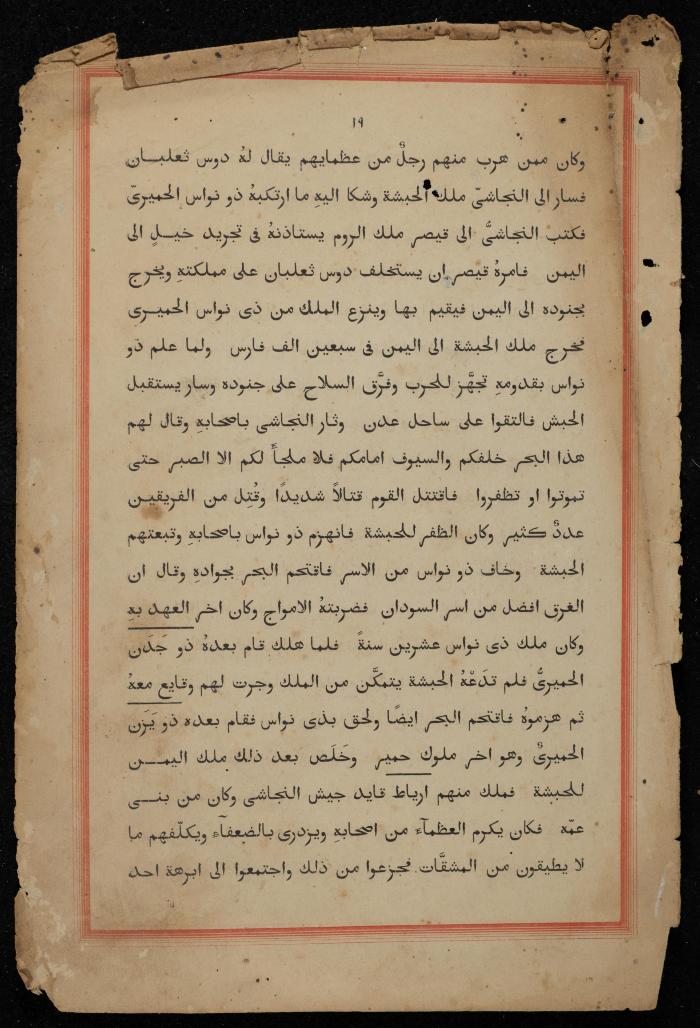 ١٩
وكان ممن هرب منهم رجلٌ من عظمايهم يقال لهُ دوس ثعلبـان
فسار الى النجاشىّ ملك الحبشة وشكا اليهِ ما ارتكبهُ ذو نواس الحميرىّ
فكتب النجاشىُّ الى قيصر ملك الروم يستاذنهُ فى تجريد خيـلٍ الى
اليمن فامرهُ قيصر ان يستخلف دوس ثعلبان على مملكتهِ ويخرج
بجنوده الى اليمن فيقيم بها وينزع الملك من ذى نواس الحميـرى
فخرج ملك الحبشة الى اليمن فى سبعين الف فارس ولما علم ذو
نواس بقدومهِ تجهَّز للحرب وفرَّق السلاح على جنوده وسار يستقبل
الحبش فالتقوا على ساحل عدن وثار النجاشى باصحابهِ وقال لهم
هذا البحر خلفكم والسيوف امامكم فلا ملجأَ لكم الا الصبر حتى
تموتوا او تظفروا فاقتتل القوم قتالاً شديدًا وقُتِل من الفريقيـن
عددٌ كثير وكان الظفر للحبشة فانهزم ذو نواس باصحابهِ وتبعتهم
الحبشة وخاف ذو نواس من الاسر فاقتحم البحر بجوادهِ وقال ان
الغرق افضل من اسر السودان فضربتهُ الامواج وكان اخر العهد بهِ
وكان ملك ذى نواس عشرين سنةً فلما هلك قام بعدهُ ذو جَدَن
الحميرىُّ فلم تدَعْهُ الحبشة يتمكَّن من الملك وجرت لهم وقايع معهُ
ثم هزموهُ فاقتحم البحر ايضًا ولحق بذى نواس فقام بعده ذو يَزَن
الحميرىُّ وهو اخر ملوك حمير وخَلَص بعد ذلك ملك اليمـــن
للحبشة فملك منهم ارياط قايد جيش النجاشى وكان من بنـــى
عمّه فكان يكرم العظمآء من اصحابهِ ويزدرى بالضعفآء ويكلّفهم ما
لا يطيقون من المشقَّات فجزعوا من ذلك واجتمعوا الى ابرهة احد